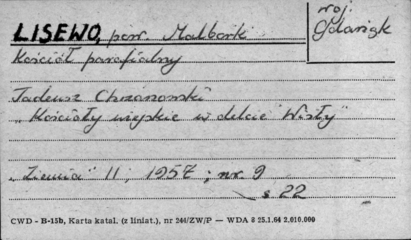 LISEWO, pow. Malbork
woj. Gdańsk
Kościół parafialny
Tadeusz Chrzanowski
"Kościoły wiejskie w delcie Wisły"
"Ziemia" II, 1957; nr. 9
s 22
CWD - B-15b, Karta katal. (z liniat.), nr 244/ZW/P — WDA 8 25.1.64 2.010.000